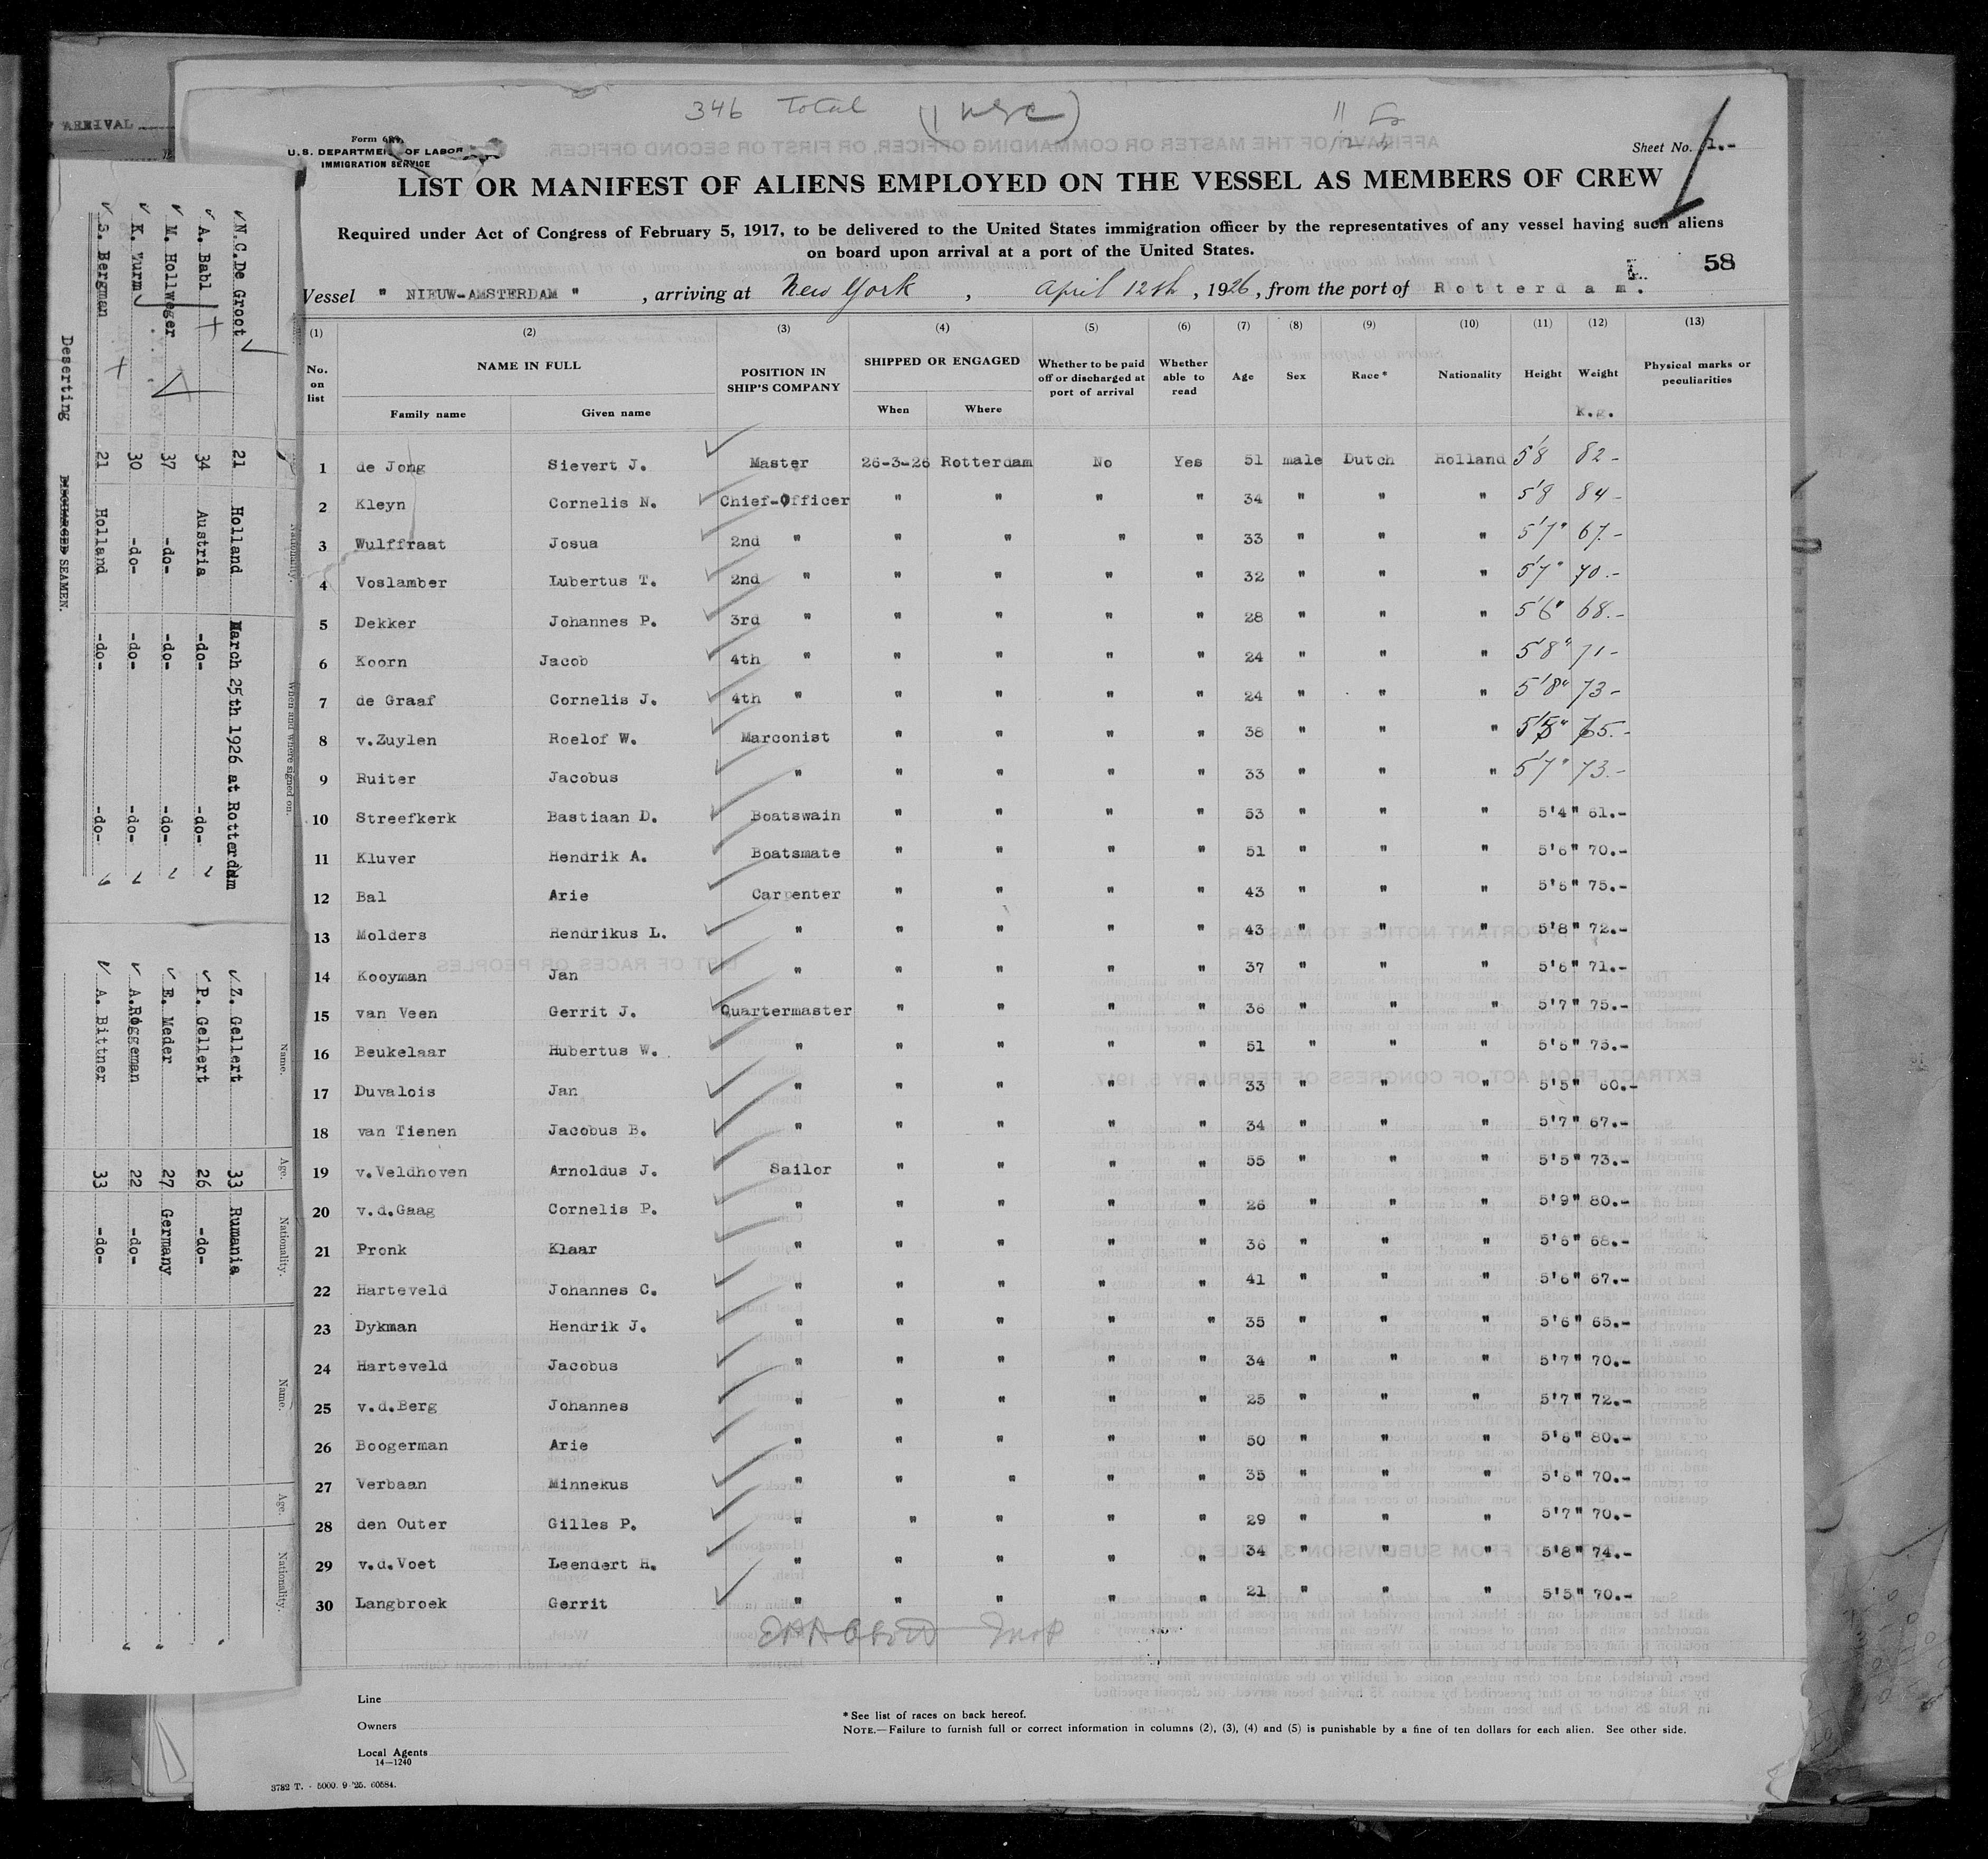 346 Total
Form 689
U.S. DEPARTMENT OF LABOR
IMMIGRATION SERVICE
Sheet No. 1.-
LIST OR MANIFEST OF ALIENS EMPLOYED ON THE VESSEL AS MEMBERS OF CREW
Required under Act of Congress of February 5, 1917, to be delivered to the United States immigration officer by the representatives of any vessel having such aliens
on board upon arrival at a port of the United States.
58
Vessel " NIEUW-AMSTERDAM ", arriving at New York, April 12th, 1926, from the port of Rotterdam.
(1) (2) (3) (4) (5) (6) (7) (8) (9) (10) (11) (12) (13)
No. on list NAME IN FULL Family name Given name POSITION IN SHIP'S COMPANY SHIPPED OR ENGAGED When Where Whether to be paid off or discharged at port of arrival Whether able to read Age Sex Race* Nationality Height Weight K.g. Physical marks or peculiarities
1 de Jong Sievert J. Master 26-3-26 Rotterdam No Yes 51 male Dutch Holland 5'8 82-
2 Kleyn Cornelis N. Chief-Officer " " " " 34 " " " 5'8 84-
3 Wulffraat Josua 2nd " " " " " 33 " " " 5'7" 67.-
4 Voslamber Lubertus T. 2nd " " " " " 32 " " " 5'7" 70.-
5 Dekker Johannes P. 3rd " " " " " 28 " " " 5'6" 68.-
6 Koorn Jacob 4th " " " " " 24 " " " 5'8" 71-
7 de Graaf Cornelis J. 4th " " " " " 24 " " " 5'8" 73-
8 v.Zuylen Roelof W. Marconist " " " " 38 " " "
9 Ruiter Jacobus " " " " " 33 " " " 5'7" 73.-
10 Streefkerk Bastiaan D. Boatswain " " " " 53 " " " 5'4" 61.-
11 Kluver Hendrik A. Boatsmate " " " " 51 " " " 5'6" 70.-
12 Bal Arie Carpenter " " " " 43 " " " 5'6" 75.-
13 Molders Hendrikus L. " " " " " 43 " " " 5'8" 72.-
14 Kooyman Jan " " " " " 37 " " " 5'6" 71.-
15 van Veen Gerrit J. Quartermaster " " " " 36 " " " 5'7" 75.-
16 Beukelaar Hubertus W. " " " " " 51 " " " 5'6" 75.-
17 Duvalois Jan " " " " " 33 " " " 5'5" 60.-
18 van Tienen Jacobus B. " " " " " 34 " " " 5'7" 67.-
19 v.Veldhoven Arnoldus J. Sailor " " " " 55 " " " 5'5" 73.-
20 v.d.Gaag Cornelis P. " " " " " 26 " " " 5'9" 80.-
21 Pronk Klaar " " " " " 36 " " " 5'6" 68.-
22 Harteveld Johannes C. " " " " " 41 " " " 5'6" 67.-
23 Dykman Hendrik J. " " " " " 35 " " " 5'6" 65.-
24 Harteveld Jacobus " " " " " 34 " " " 5'7" 70.-
25 v.d.Berg Johannes " " " " " 25 " " " 5'7" 72.-
26 Boogerman Arie " " " " " 50 " " " 5'6" 80.-
27 Verbaan Minnekus " " " " " 35 " " " 5'6" 70.-
28 den Outer Gilles P. " " " " " 29 " " " 5'7" 70.-
29 v.d.Voet Leendert H. " " " " " 34 " " " 5'8" 74.-
30 Langbroek Gerrit " " " " " 21 " " " 5'5" 70.-
Line
Owners
Local Agents
14-1240
*See list of races on back hereof.
NOTE.—Failure to furnish full or correct information in columns (2), (3), (4) and (5) is punishable by a fine of ten dollars for each alien. See other side.
3782 T. - 5000. 9 '25. 60584.
ARRIVAL
Nationality. When and where signed on.
N.C.De Groot 21 Holland March 25th 1926 at Rotterdam
A. Babl 34 Austria -do- -do-
M. Hollweger 37 -do- -do- -do-
K. Turm 30 -do- -do- -do-
S. Bergman 21 Holland -do- -do-
Deserting DISCHARGED SEAMEN.
Name. Age. Nationality. Name. Age. Nationality.
Z. Gellert 33 Rumania
P. Gellert 26 -do-
E. Meder 27 Germany
A.Roggeman 22 -do-
A. Bittner 33 -do-